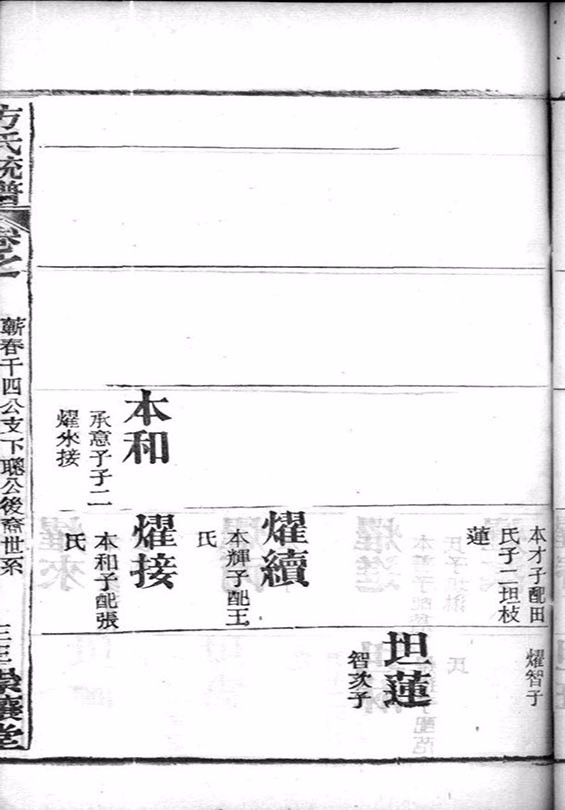 本才子配田
氏子二坦枝
蓮
燿智子
坦蓮
智次子
燿續
本輝子配王
氏
本和
承意子子二
燿來接
燿接
本和子配張
氏
方氏統譜
卷之一
蘄春千四公支下聰公後裔世系